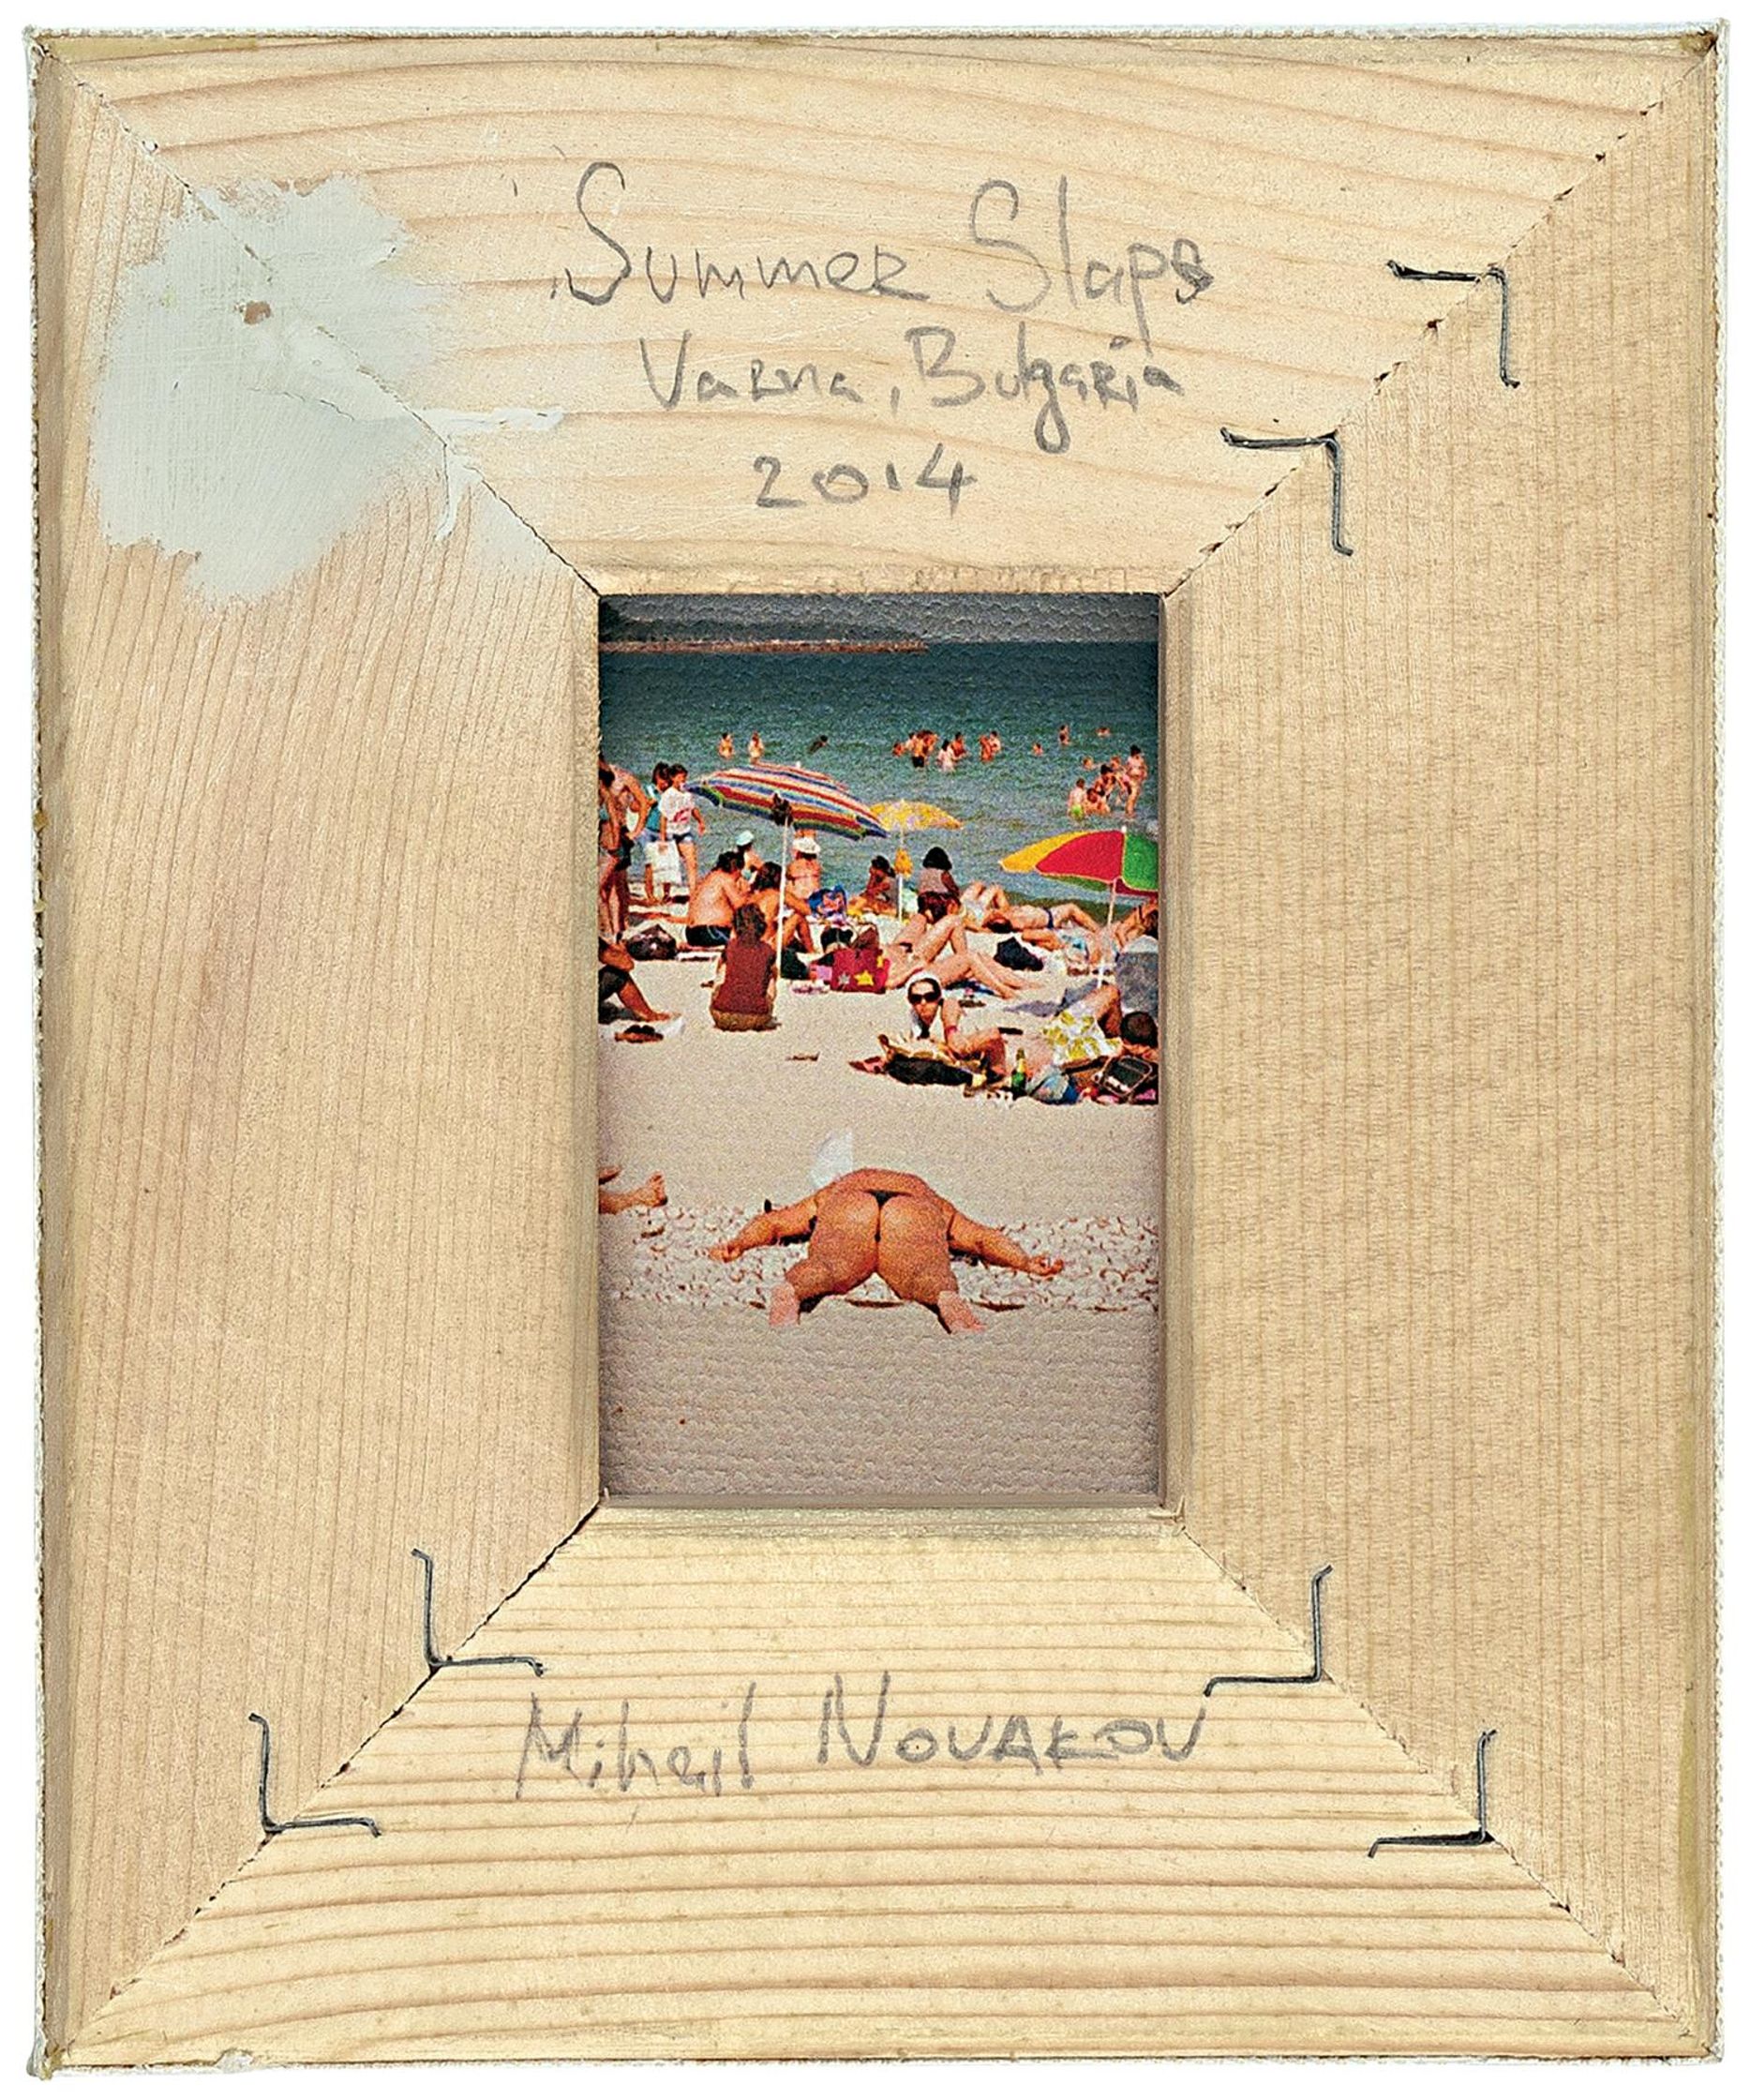 Summer Slaps
Varna, Bulgaria
2014
Mihail Novakov